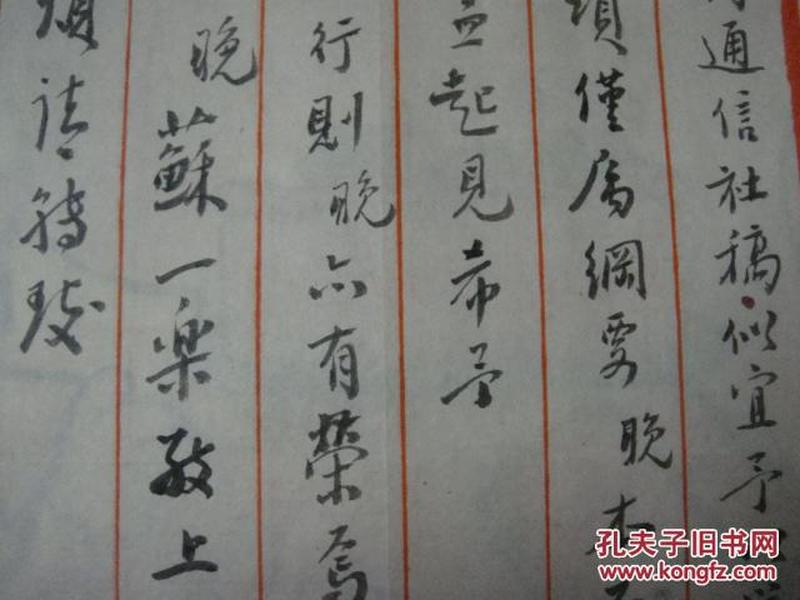 通信社稿似宜予
僅屬綱要晚本
益起見希予
行則晚亦有榮焉
晚蘇一樂敬上
頌請
孔夫子旧书网
www.kongfz.com